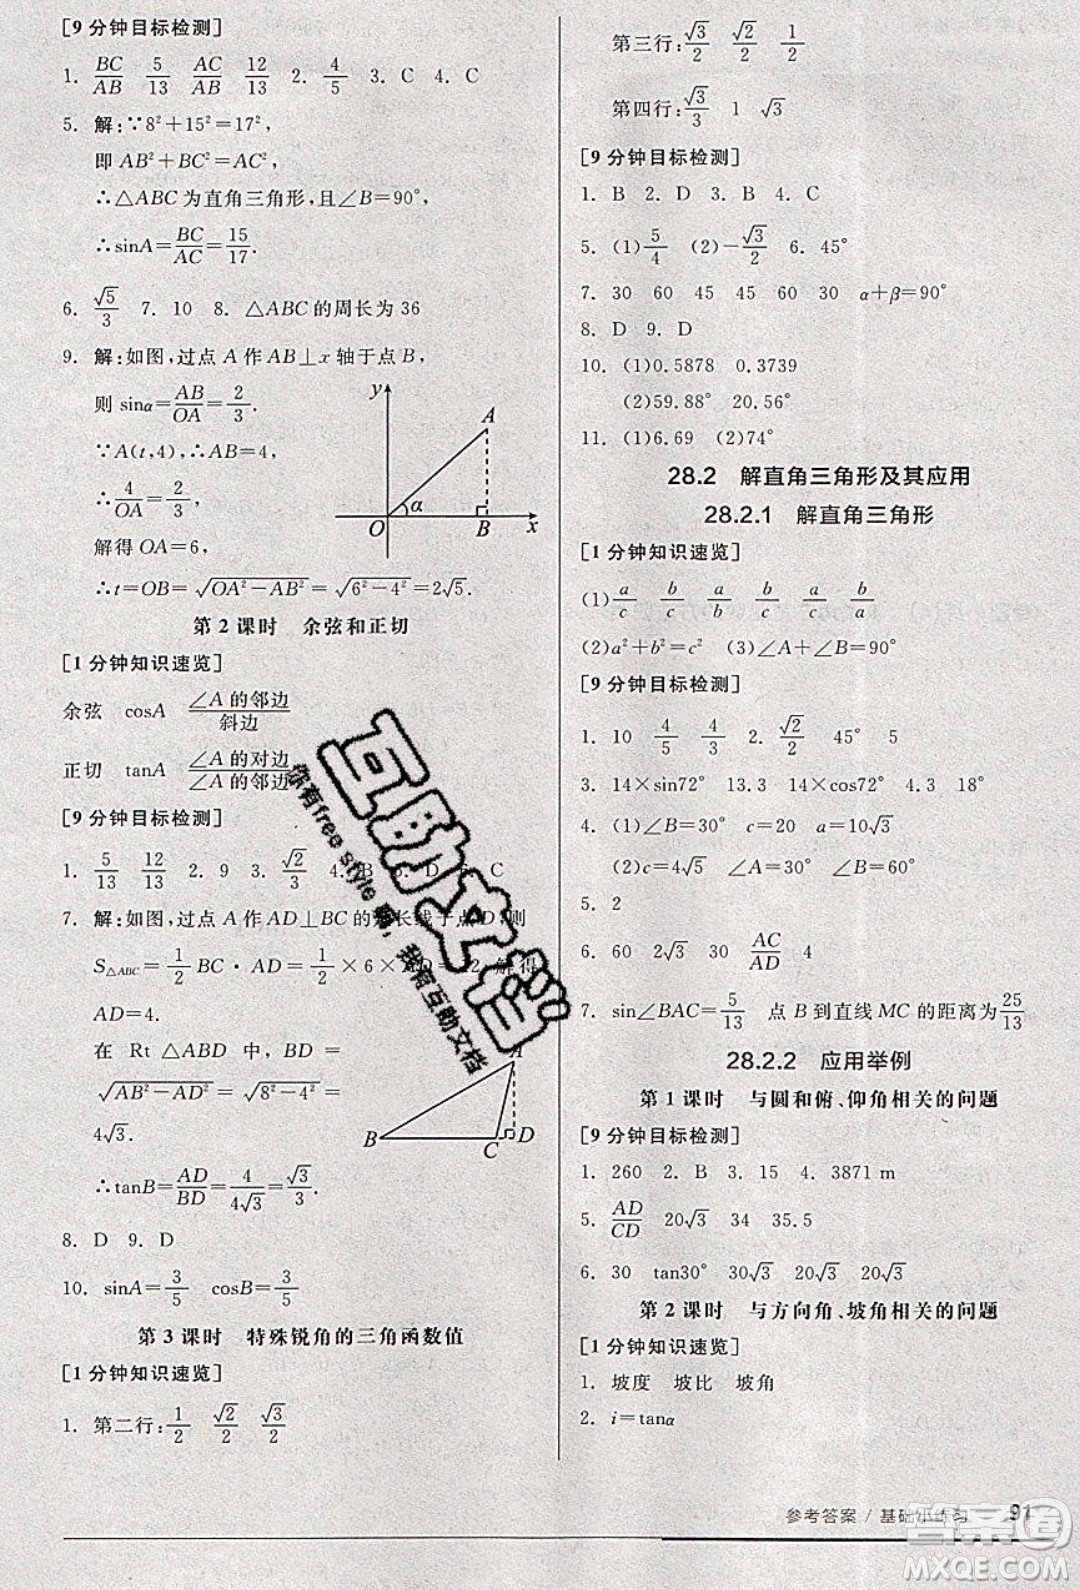 [9分钟目标检测]
1. BC/AB  5/13  AC/AB  12/13  2. 4/5  3. C  4. C
5. 解:∵8²+15²=17²,
即 AB²+BC²=AC²,
∴△ABC 为直角三角形,且∠B=90°,
∴sinA=BC/AC=15/17.
6. √5/3  7. 10  8. △ABC 的周长为 36
9. 解:如图,过点 A 作 AB⊥x 轴于点 B,
则 sinα=AB/OA=2/3.
∵A(t,4),∴AB=4,
∴4/OA=2/3,
解得 OA=6,
∴t=OB=√(OA²-AB²)=√(6²-4²)=2√5.
y
A
α
O
B
x
第 2 课时 余弦和正切
[1分钟知识速览]
余弦 cosA ∠A的邻边/斜边
正切 tanA ∠A的对边/∠A的邻边
[9分钟目标检测]
1. 5/13  12/13  2. 9  3. √2/2  4. B  D  C
7. 解:如图,过点 A 作 AD⊥BC 的 长线于点 D,则
S△ABC=1/2 BC·AD=1/2×6× D= 12 解得
AD=4.
在 Rt △ABD 中,BD=
√(AB²-AD²)=√(8²-4²)=
4√3.
∴tanB=AD/BD=4/(4√3)=√3/3.
A
B
C
D
8. D  9. D
10. sinA=3/5  cosB=3/5
第 3 课时 特殊锐角的三角函数值
[1分钟知识速览]
1. 第二行:1/2  √2/2  √3/2
第三行:√3/2  √2/2  1/2
第四行:√3/3  1  √3
[9分钟目标检测]
1. B  2. D  3. B  4. C
5. (1)5/4  (2)-√3/2  6. 45°
7. 30  60  45  45  60  30  α+β=90°
8. D  9. D
10. (1)0.5878  0.3739
(2)59.88°  20.56°
11. (1)6.69  (2)74°
28.2 解直角三角形及其应用
28.2.1 解直角三角形
[1分钟知识速览]
(1)a/c  b/c  a/b  b/c  a/c  b/a
(2)a²+b²=c²  (3)∠A+∠B=90°
[9分钟目标检测]
1. 10  4/5  4/3  2. √2/2  45°  5
3. 14×sin72°  13.3  14×cos72°  4.3  18°
4. (1)∠B=30°  c=20  a=10√3
(2)c=4√5  ∠A=30°  ∠B=60°
5. 2
6. 60  2√3  30  AC/AD  4
7. sin∠BAC=5/13  点 B 到直线 MC 的距离为25/13
28.2.2 应用举例
第 1 课时 与圆和俯、仰角相关的问题
[9分钟目标检测]
1. 260  2. B  3. 15  4. 3871 m
5. AD/CD  20√3  34  35.5
6. 30  tan30°  30√3  20√3  20√3
第 2 课时 与方向角、坡角相关的问题
[1分钟知识速览]
1. 坡度 坡比 坡角
2. i=tanα
参考答案 / 基础小练习 91
互助文档
你有free style 嘛, 我有互助文档
答案圈
MXQE.COM